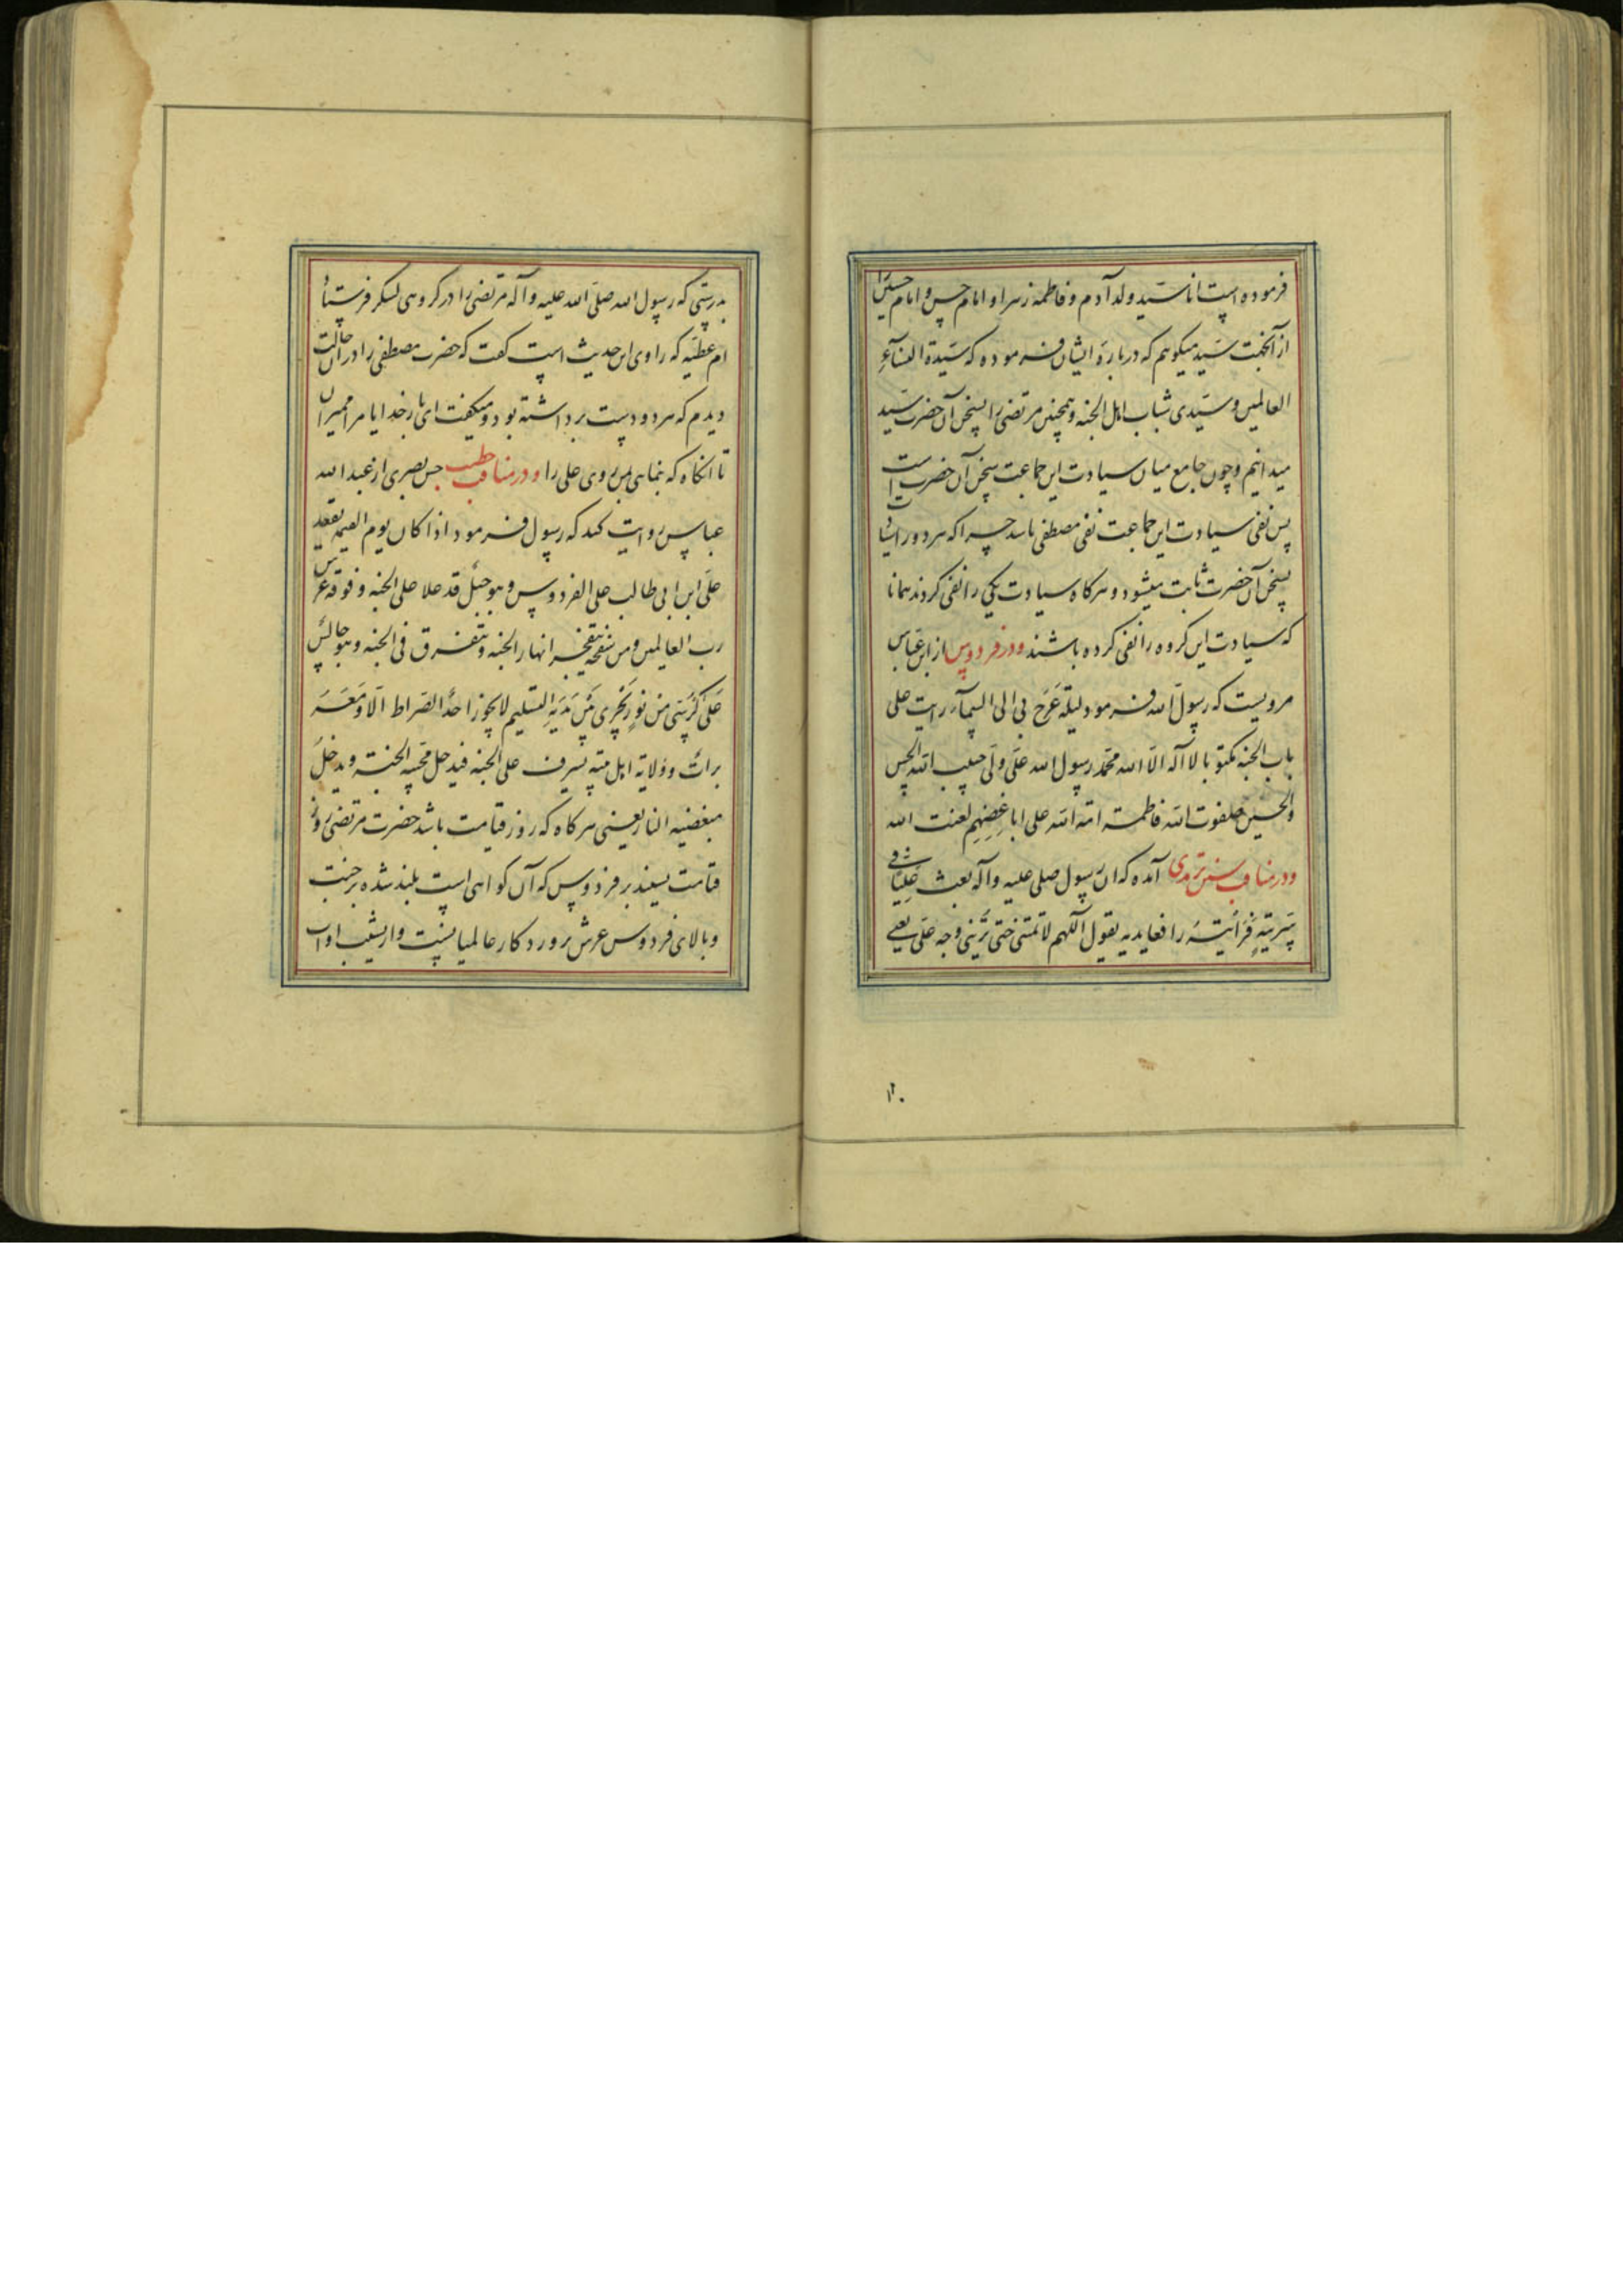 فرموده است انا سید ولد آدم و فاطمه زهرا و امام حسن و امام حسین را
از آنجهت سید میکوییم که درباره ایشان فرموده که سیدة النسآء
العالمین و سیدی شباب اهل الجنه و همچنین مرتضی را بسخن آن حضرت سید
میدانیم و چون جامع میان سیادت این جماعت سخن آن حضرت است
پس نفی سیادت این جماعت نفی مصطفی باشد چرا که هر دو را
بسخن آن حضرت ثابت میشود و هرکاه سیادت یکی را نفی کردند همانا
که سیادت این کروه را نفی کرده باشند و در فردوس از ابن عباس
مرویست که رسول الله فرمود لیلة عرج بی الی السمآء رایت علی
باب الجنه مکتوبا لا آله الا الله محمد رسول الله علی ولی حبیب الله الحسن
والحسین صفوت الله فاطمة امة الله علی اباغضهم لعنت الله
و در مناقب سنن ترمدی آمده که ان رسول صلی علیه وآله بعث علیا فی
سریة فرأیته رافعا یدیه یقول اللهم لا تمتنی حتی ترینی وجه علی یعنی
۱۲۰
بدرستی که رسول الله صلی الله علیه وآله مرتضی را در کروهی لشکر فرستاد
ام عطیه که راوی این حدیث است کفت که حضرت مصطفی را در آن حالت
دیدم که هر دو دست برداشته بود و میکفت ای بار خدایا مرا ممیران
تا آنکاه که بنمایی بمن روی علی را و در مناقب خطیب حسن بصری از عبد الله
عباس روایت کند که رسول فرمود اذا کان یوم القیمه یقعد
علی ابن ابی طالب علی الفردوس و هو جبل قد علا علی الجنه و فوقه عرش
رب العالمین و من سفحه یتفجر انهار الجنه و یتفرق فی الجنه و هو جالس
علی کرسی من نور یجری من یدیه التسلیم لا یجوز احد الصراط الا و معه
برات و ولایة اهل بیته یشرف علی الجنه فیدخل محبیه الجنة و یدخل
مبغضیه النار یعنی هرکاه که روز قیامت باشد حضرت مرتضی روز
قیامت نشیند بر فردوس که آن کوهی است بلند شده بر جنت
و بالای فردوس عرش پروردکار عالمیانست و از شیب او آب